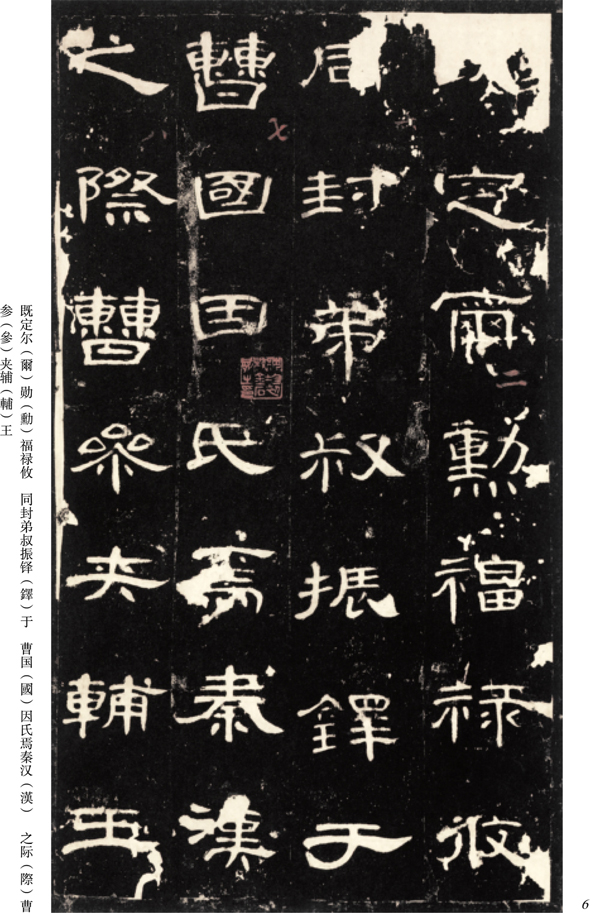 定爾勳福祿攸
同封弟叔振鐸于
曹國因氏焉秦漢
之際曹參夾輔王
既定尔（爾）勋（勳）福禄攸 同封弟叔振铎（鐸）于 曹国（國）因氏焉秦汉（漢） 之际（際）曹
参（參）夹辅（輔）王
6